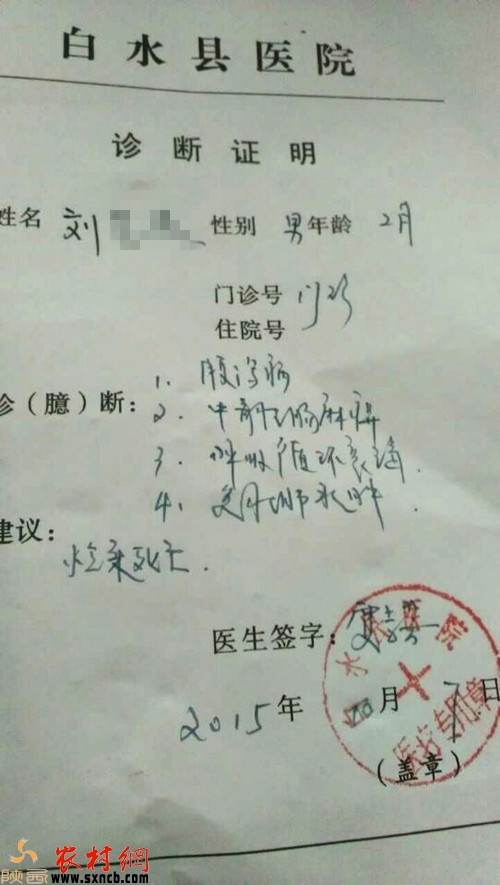 白水县医院
诊断证明
姓名 刘 性别 男 年龄 2月
门诊号 门诊
住院号
诊（臆）断：
1. 腹泻病
2. 中毒性肠麻痹
3. 呼吸循环衰竭.
4.
建议：
死亡.
医生签字：
2015年 10月 7日
白水县医院
医疗专用章
（盖章）
陕西农村網
www.sxncb.com